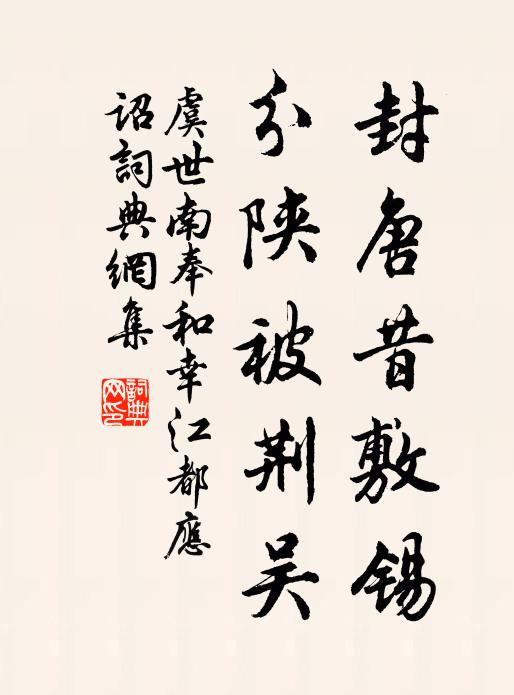 封唐昔敷锡
分陕被荆吴
虞世南奉和幸江都應
詔詞典網集
詞典
网印